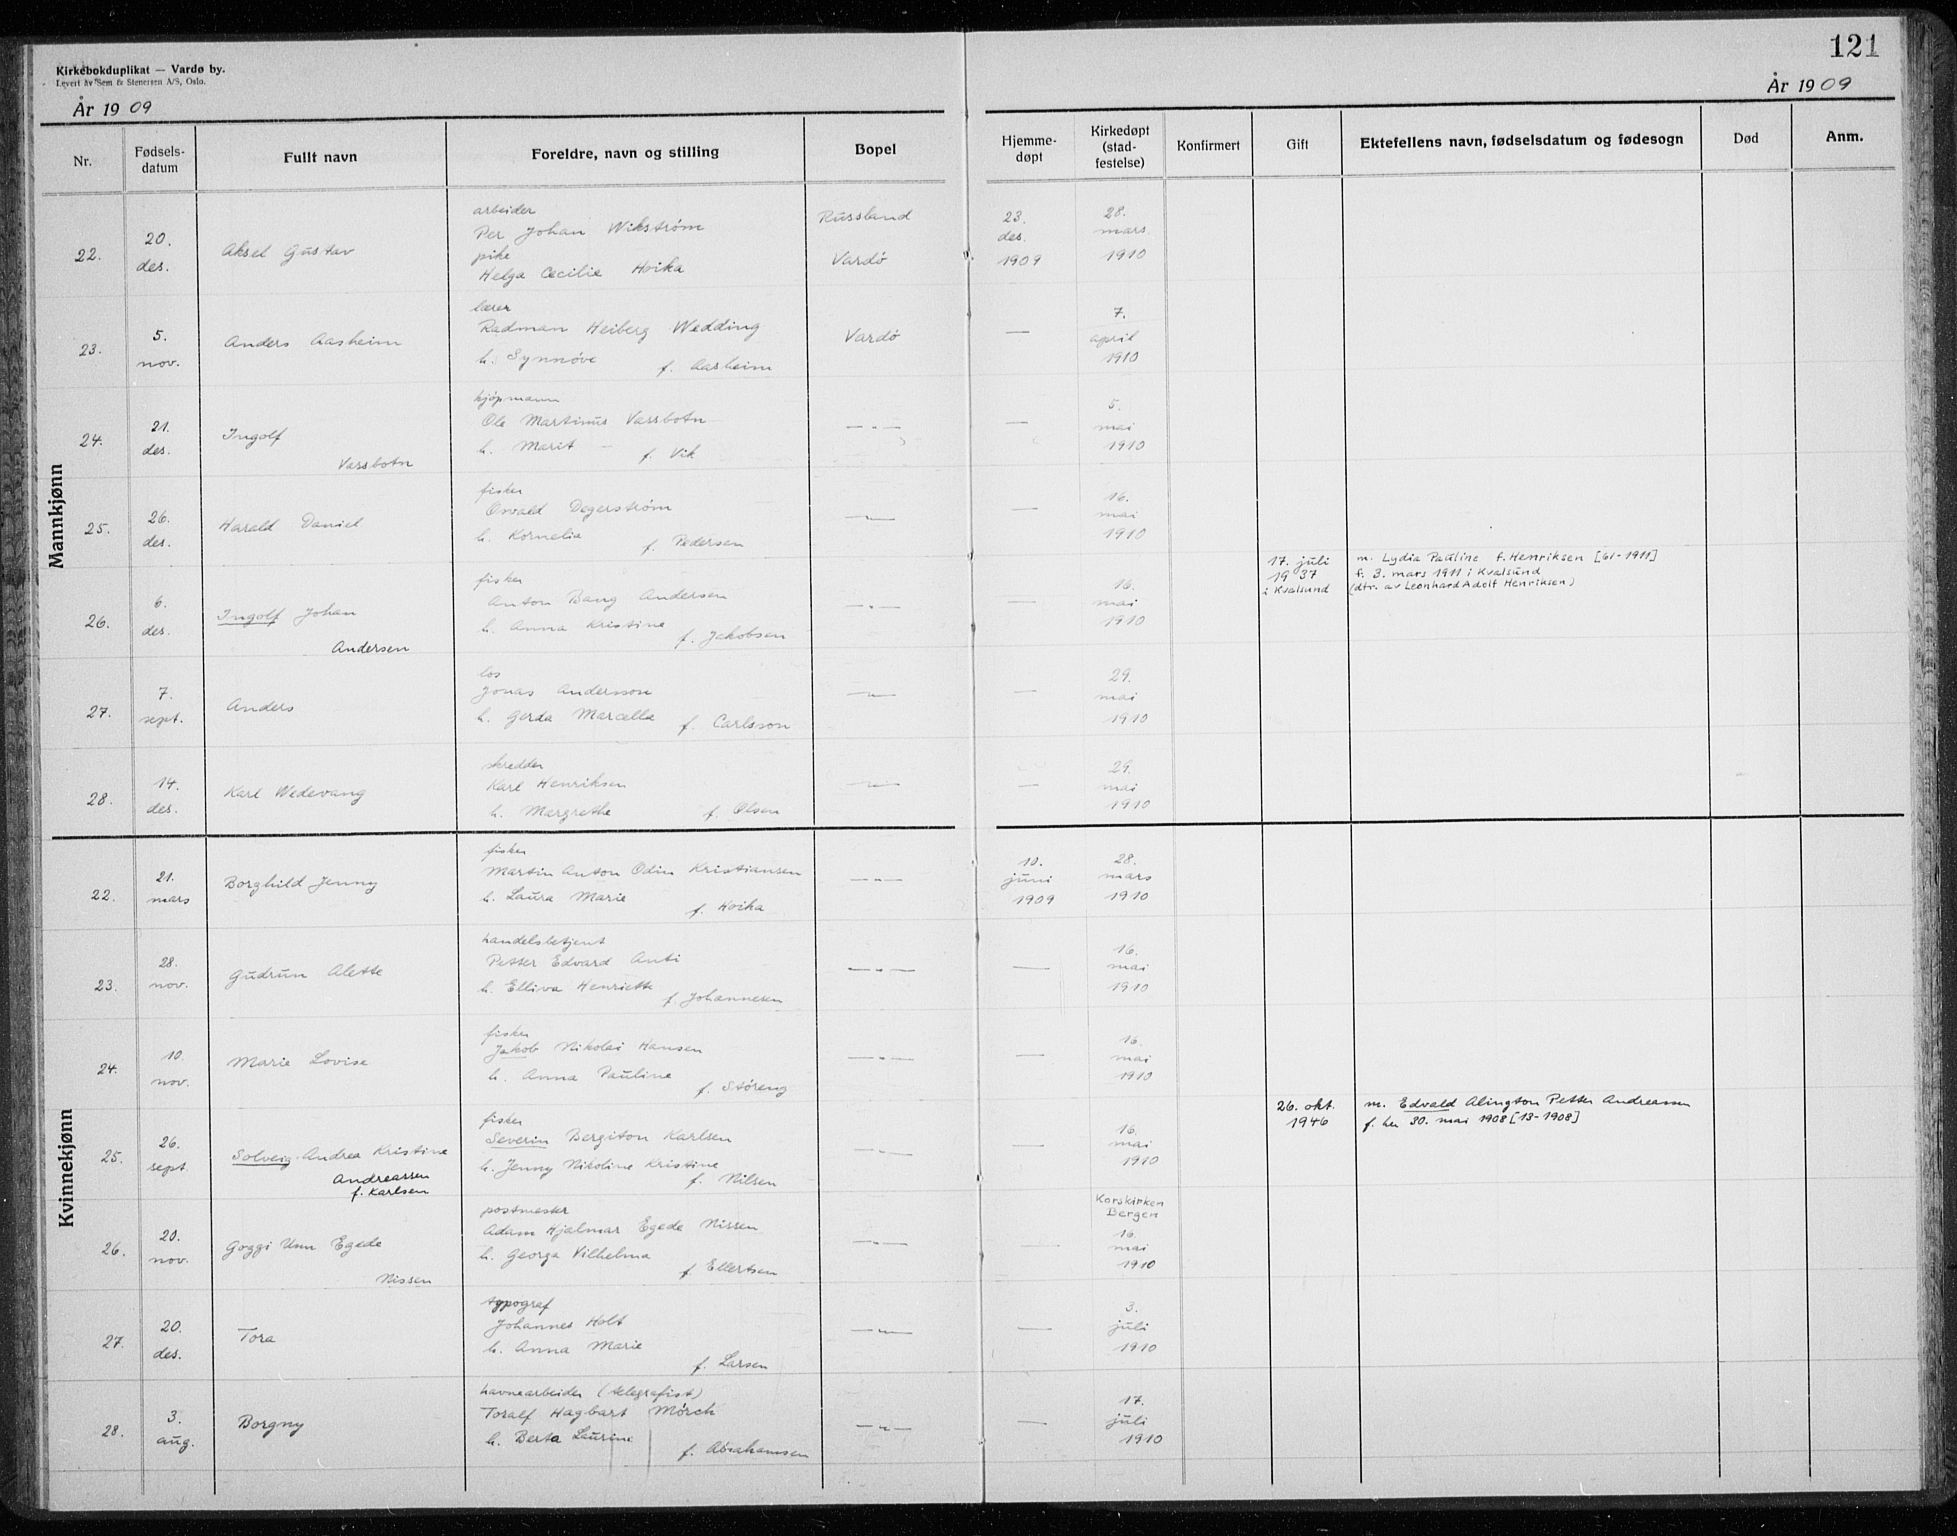 121
Kirkebokduplikat — Vardø by.
Levert av Sem & Stenersen A/S, Oslo.
År 1909
År 1909
Nr. Fødselsdatum Fullt navn Foreldre, navn og stilling Bopel Hjemmedøpt Kirkedøpt (stadfestelse) Konfirmert Gift Ektefellens navn, fødselsdatum og fødesogn Død Anm.
Mannkjønn
arbeider Russland 23. 28.
20. Per Johan Wikstrøm des. mars
22. des. Aksel Gustav pike Vardø 1909 1910
Helga Cecilie Hoika
lærer 7.
5. Radman Heiberg Wedding Vardø — april
23. nov. Anders Aasheim h. Synnøve f. Aasheim 1910
kjøpmann 5.
21. Ole Martinus Vassbotn —"— — mai
24. des. Ingolf h. Marit f. Vik 1910
Vassbotn
fisker 16.
26. Osvald Degerstrøm —"— — mai
25. des. Harald Daniel h. Kornelia f. Pedersen 1910
17. juli m. Lydia Pauline f. Henriksen [61-1911]
1937 f. 3. mars 1911 i Kvalsund
i Kvalsund (dtr. av Leonhard Adolf Henriksen)
fisker 16.
6. Anton Bang Andersen — mai
26. des. Ingolf Johan h. Anna Kristine f. Jakobsen 1910
Andersen
los 29.
7. Jonas Andersson —"— — mai
27. sept. Anders h. Gerda Marcella f. Carlsson 1910
skredder 29.
14. Karl Henriksen —"— — mai
28. des. Karl Wedevang h. Margrethe f. Olsen 1910
Kvinnekjønn
fisker 10. 28.
21. Martin Anton Odin Kristiansen —"— juni mars
22. mars Borghild Jenny h. Laura Marie f. Hoika 1909 1910
handelsbetjent 16.
28. Petter Edvard Anti —"— — mai
23. nov. Gudrun Alette h. Elliva Henriette f. Johannesen 1910
fisker 16.
10. Jakob Nikolai Hansen —"— — mai
24. nov. Marie Lovise h. Anna Pauline f. Støreng 1910
26. okt. m. Edvald Alington Petter Andreassen
1946 f. her 30. mai 1908 [13-1908]
fisker 16.
26. Severin Bergiton Karlsen —"— — mai
25. sept. Solveig Andrea Kristine h. Jenny Nikoline Kristine f. Nilsen 1910
Andreassen
f. Karlsen
Korskirken
Bergen
postmester 16.
20. Adam Hjalmar Egede Nissen —"— — mai
26. nov. Goggi Unn Egede h. Georga Vilhelma f. Ellertsen 1910
Nissen
typograf 3.
20. Johannes Holt —"— — juli
27. des. Tora h. Anna Marie f. Larsen 1910
havnearbeider (telegrafist) 17.
3. Toralf Hagbart Mörch —"— — juli
28. aug. Borgny h. Berta Laurine f. Abrahamsen 1910